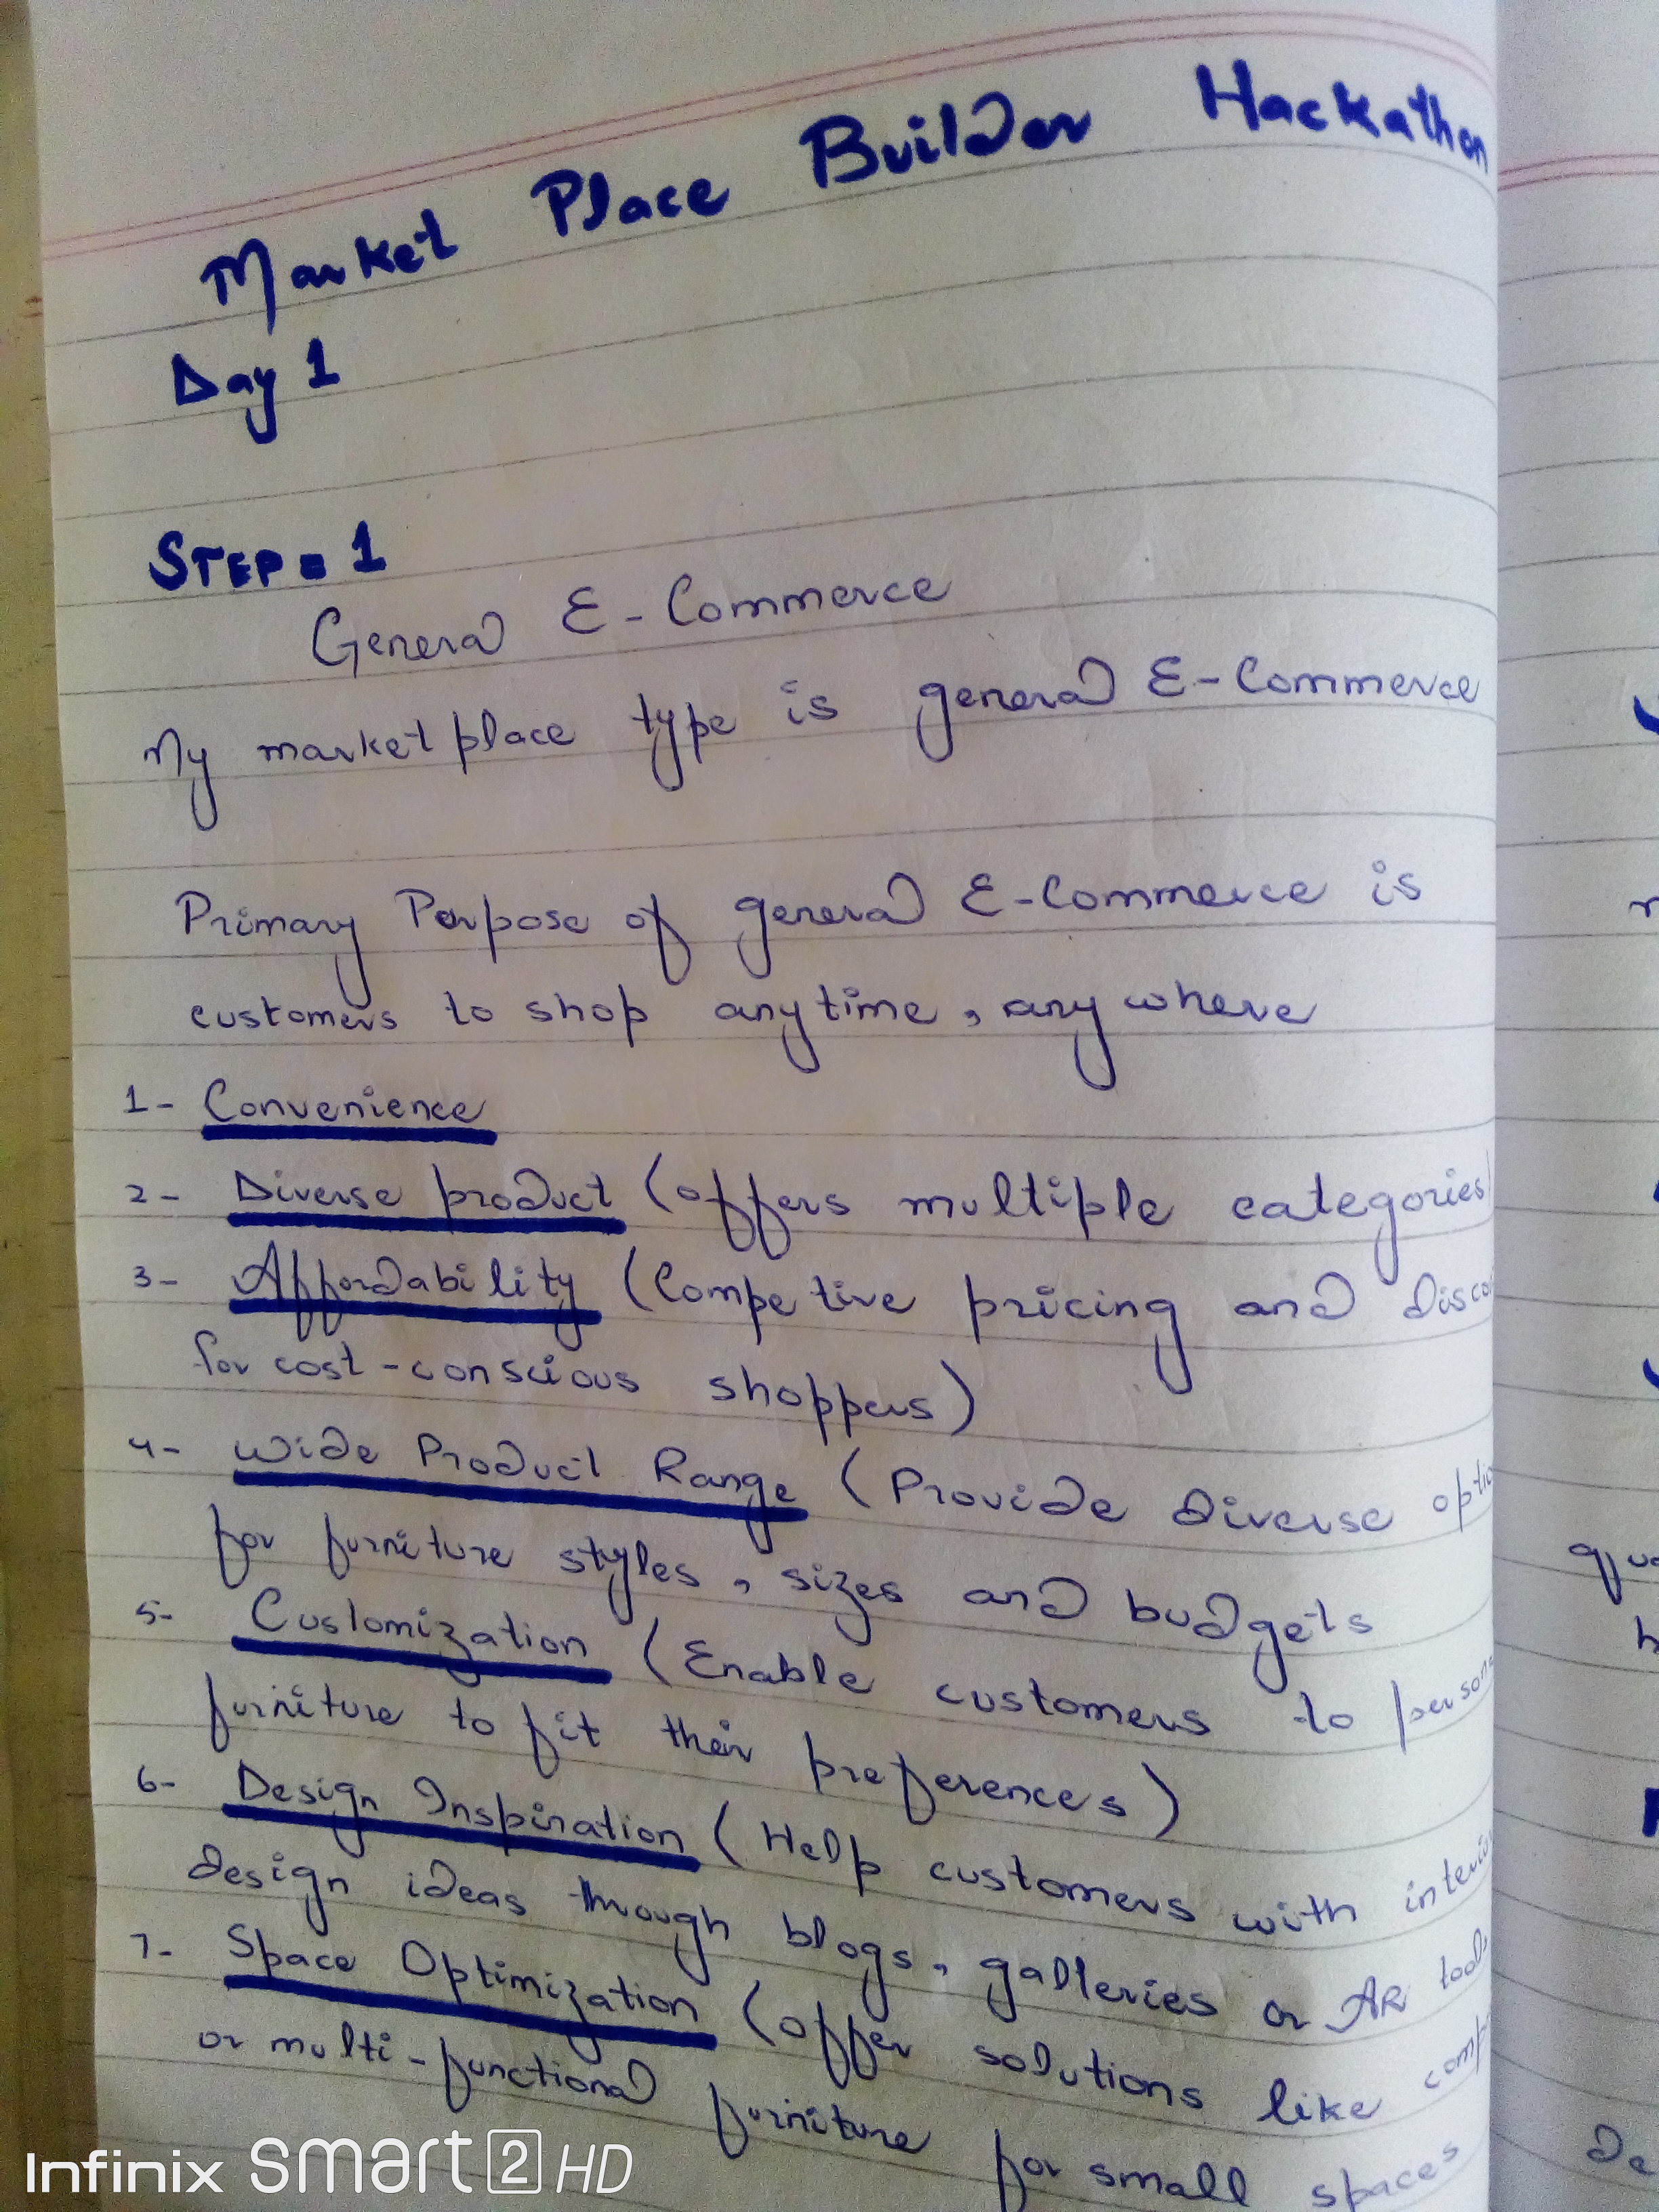 Market Place Builder Hackathon
Day 1
STEP = 1
General E-Commerce
My marketplace type is general E-Commerce
Primary Perpose of general E-Commerce is
customers to shop anytime, anywhere
1- Convenience
2- Diverse product (offers multiple categories)
3- Affordability (Competive pricing and disco
for cost-conscious shoppers)
4- Wide Product Range (Provide diverse optio
for furniture styles, sizes and budgets
5- Customization (Enable customers to person
furniture to fit their preferences)
6- Design Inspiration (Help customers with interio
design ideas through blogs, galleries or AR tools
7- Space Optimization (offer solutions like comp
or multi-functional furniture for small spaces
Infinix Smart 2 HD